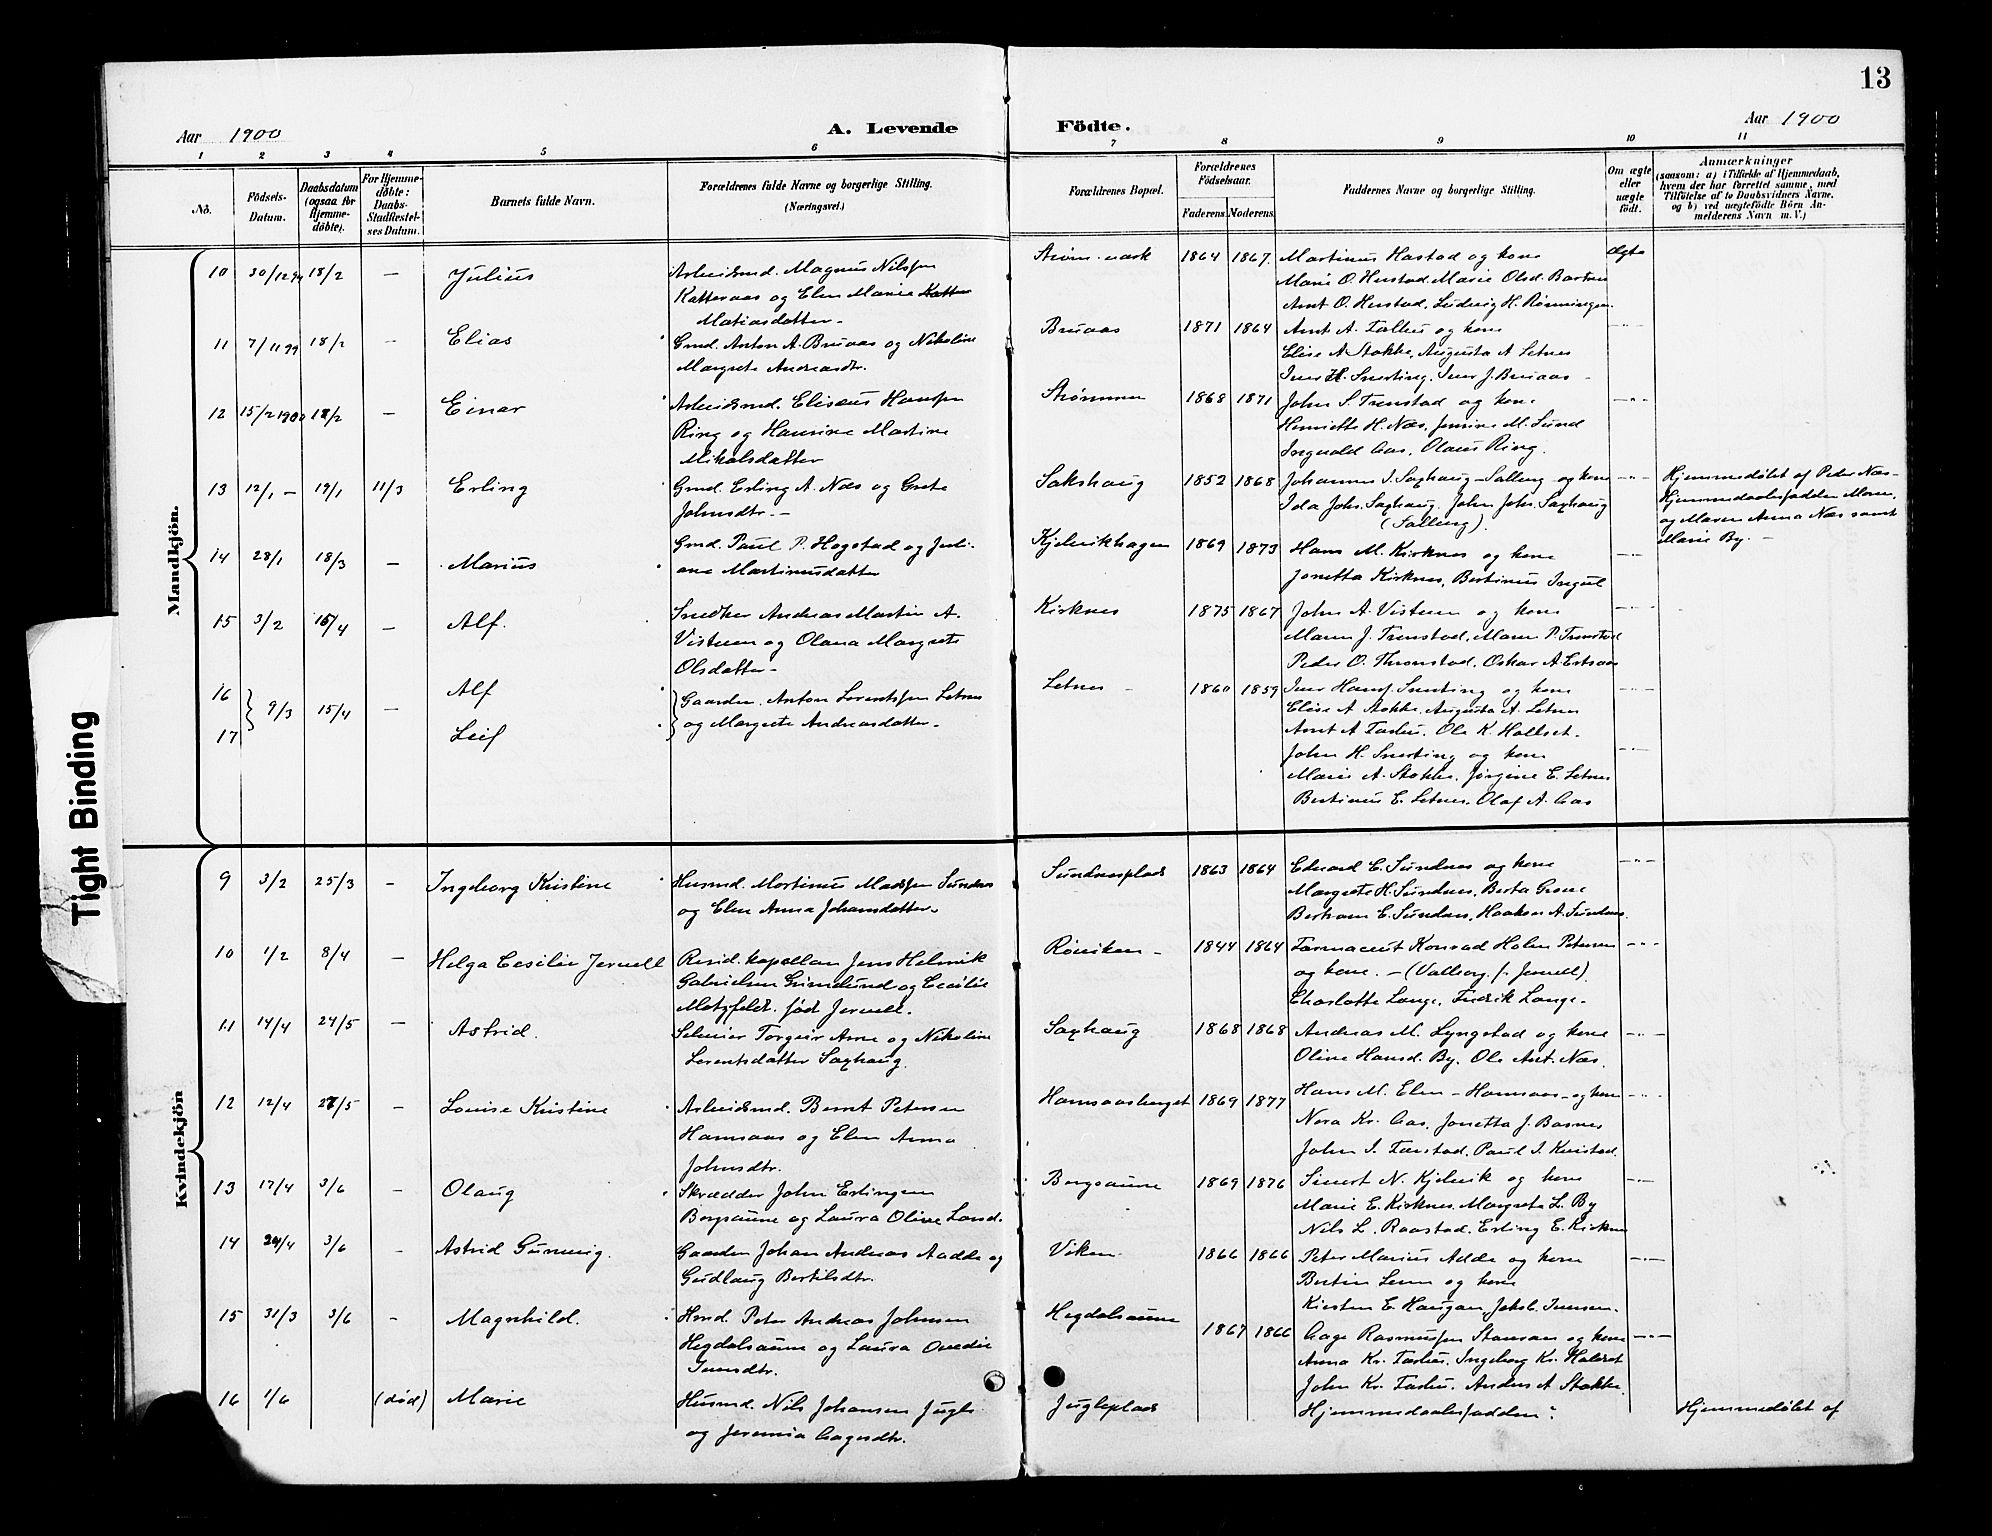 13
Aar 1900 A. Levende Födte. Aar 1900
1 2 3 4 5 6 7 8 9 10 11
No. Födsels-Datum. Daabsdatum (ogsaa for Hjemme-döbte). For Hjemme-döbte: Daabs-Stadfæstel-ses Datum. Barnets fulde Navn. Forældrenes fulde Navne og borgerlige Stilling. (Næringsvei.) Forældrenes Bopæl. Forældrenes Födselsaar. Faderens. Moderens. Faddernes Navne og borgerlige Stilling. Om ægte eller uægte födt. Anmærkninger (saasom: a) i Tilfælde af Hjemmedaab, hvem der har forrettet samme, med Tilföielse af to Daabsvidners Navne, og b) ved uægtefödte Börn An-melderens Navn m. V.)
Mandkjön.
10 30/12 99 18/2 — Julius Arbeidsmd. Magnus Nilssen Strøm mark 1864 1867. Martinus Hastad og kone Ægte
Katteraas og Elen Marie Marie O. Hustad, Marie Olsd. Bartnes
Matiasdatter - Arnt O. Hustad, Ludvig H. Rønningen
11 7/11 99 18/2 - Elias Grmd. Anton A. Bruaas og Nikoline Bruaas 1871 1864 Arnt A. Falhus og kone -"-
Margrete Andreasdtr. Elise A. Stokke, Augusta A. Letnes
Iver H. Snerting. Iver J. Bruaas -
12 15/2 1900 18/2 - Einar Arbeidsmd. Elisæus Hansen Strømmen 1868 1871 John S. Trenstad og kone -"-
Ring og Hansine Martine Henriette H. Næs, Jensine M. Sund
Mikalsdatter Ingvald Aas, Olaus Ring.
13 12/1 - 19/1 11/3 Erling Grmd. Erling A. Næs og Grete Sakshaug 1852 1868 Johannes J. Saxhaug - Salling - og kone -"- Hjemmedøbt af Peder Næs -
Johnsdtr. - Ida Johs. Saxhaug. John Johs. Saxhaug Hjemmedaabsfadder Moren,
(Salling). og Maren Anna Næs samt
Marie By. -
14 28/1 18/3 - Marius Grmd. Paul P. Hogstad og Juli- Kjelvikhagen 1869 1873 Hans M. Kirknes og kone -"-
ane Martinusdatter Jonetta Kirknes, Bertinus Ingul
15 3/2 16/4 - Alf. Snedker Andreas Martin A. Kirknes 1875 1867 John A. Vistuen og kone -"-
Vistuen og Olana Margrete Maren J. Trenstad, Maren P. Trenstad
Olsdatter - Peder O. Thronstad, Oskar A. Ertsaas
16 9/3 15/4 - Alf Gaardm. Anton Lorentsen Letnes Letnes - 1860 1859 Iver Hans. Snerting og kone -"-
og Margrete Andreasdatter - Elise A. Stokke, Augusta A. Letnes
Arnt A. Fashus. Ole K. Hallset.
17 Leif John H. Snerting og kone -"-
Marie A. Stokke, Jørgine E. Letnes
Bertinus E. Letnes, Olaf A. Aas
Kvindekjön
9 3/2 25/3 - Ingeborg Kristine Husmd. Martinus Madssen Sundnes Sundnesplads 1863 1864 Edvard E. Sundnes og kone -"-
og Elen Anna Johansdatter. Margrete H. Sundnes, Berta Grone
Bertram E. Sundnes, Haakon A. Sundnes.
10 1/2 8/4 - Helga Cecilie Jervell Resid. kapellan Jens Helmik Røviken - 1844 1864 Farmaceut Konrad Holm Petersen -"-
Gabrielsen Grimelund og Cecilie og kone. - (Valborg f. Jervell).
Motzfeldt født Jervell. Charlotte Lange, Fredrik Lange -
11 14/4 24/5 - Astrid. Selveier Torgeir Arne og Nikoline Saxhaug 1868 1868 Andreas M. Lyngstad og kone -"-
Lorentsdatter Saxhaug. Oline Hansd. By. Ole Ant. Næs.
12 12/4 27/5 - Louise Kristine Arbeidsmd. Bernt Petersen Hamsaasberget 1869 1877 Hans M. Elen - Hamsaas - og kone -"-
Hamsaas og Elen Anna Nora Kr. Aas, Jonetta J. Basnes
Johnsdtr. John J. Færstad, Paul J. Kvistad.
13 17/4 3/6 - Olaug Skrædder John Erlingsen Borgsaune 1869 1876 Sivert N. Kjelvik og kone -"-
Borgsaune og Laura Oline Larsd. Marie E. Kirknes, Margrete L. By
Nils L. Raastad, Erling E. Kirknes
14 24/4 3/6 - Astrid Gunvaug. Gaardm. Johan Andreas Aadde og Viken - 1866 1866 Peter Marius Adde og kone -"-
Gudlaug Bertilsdtr. Bertin Lein og kone
Kirsten E. Haugan, Jakob Iversen.
15 31/3 3/6 - Magnhild. Hmd. Peter Andreas Johnsen Hegdalsaune 1867 1866 Aage Rasmussen Stavran og kone -"-
Hegdalsaune og Laura Ovedie Anna Kr. Fashus. Ingeborg Kr. Halset
Iversdtr. John Kr. Fashus. Anders A. Stokke.
16 1/6 (død) Marie Husmd. Nils Johansen Jugle Jugleplads Hjemmedaabsfadder: Hjemmedøbt af
og Jeremia Aagesdtr.
Tight Binding